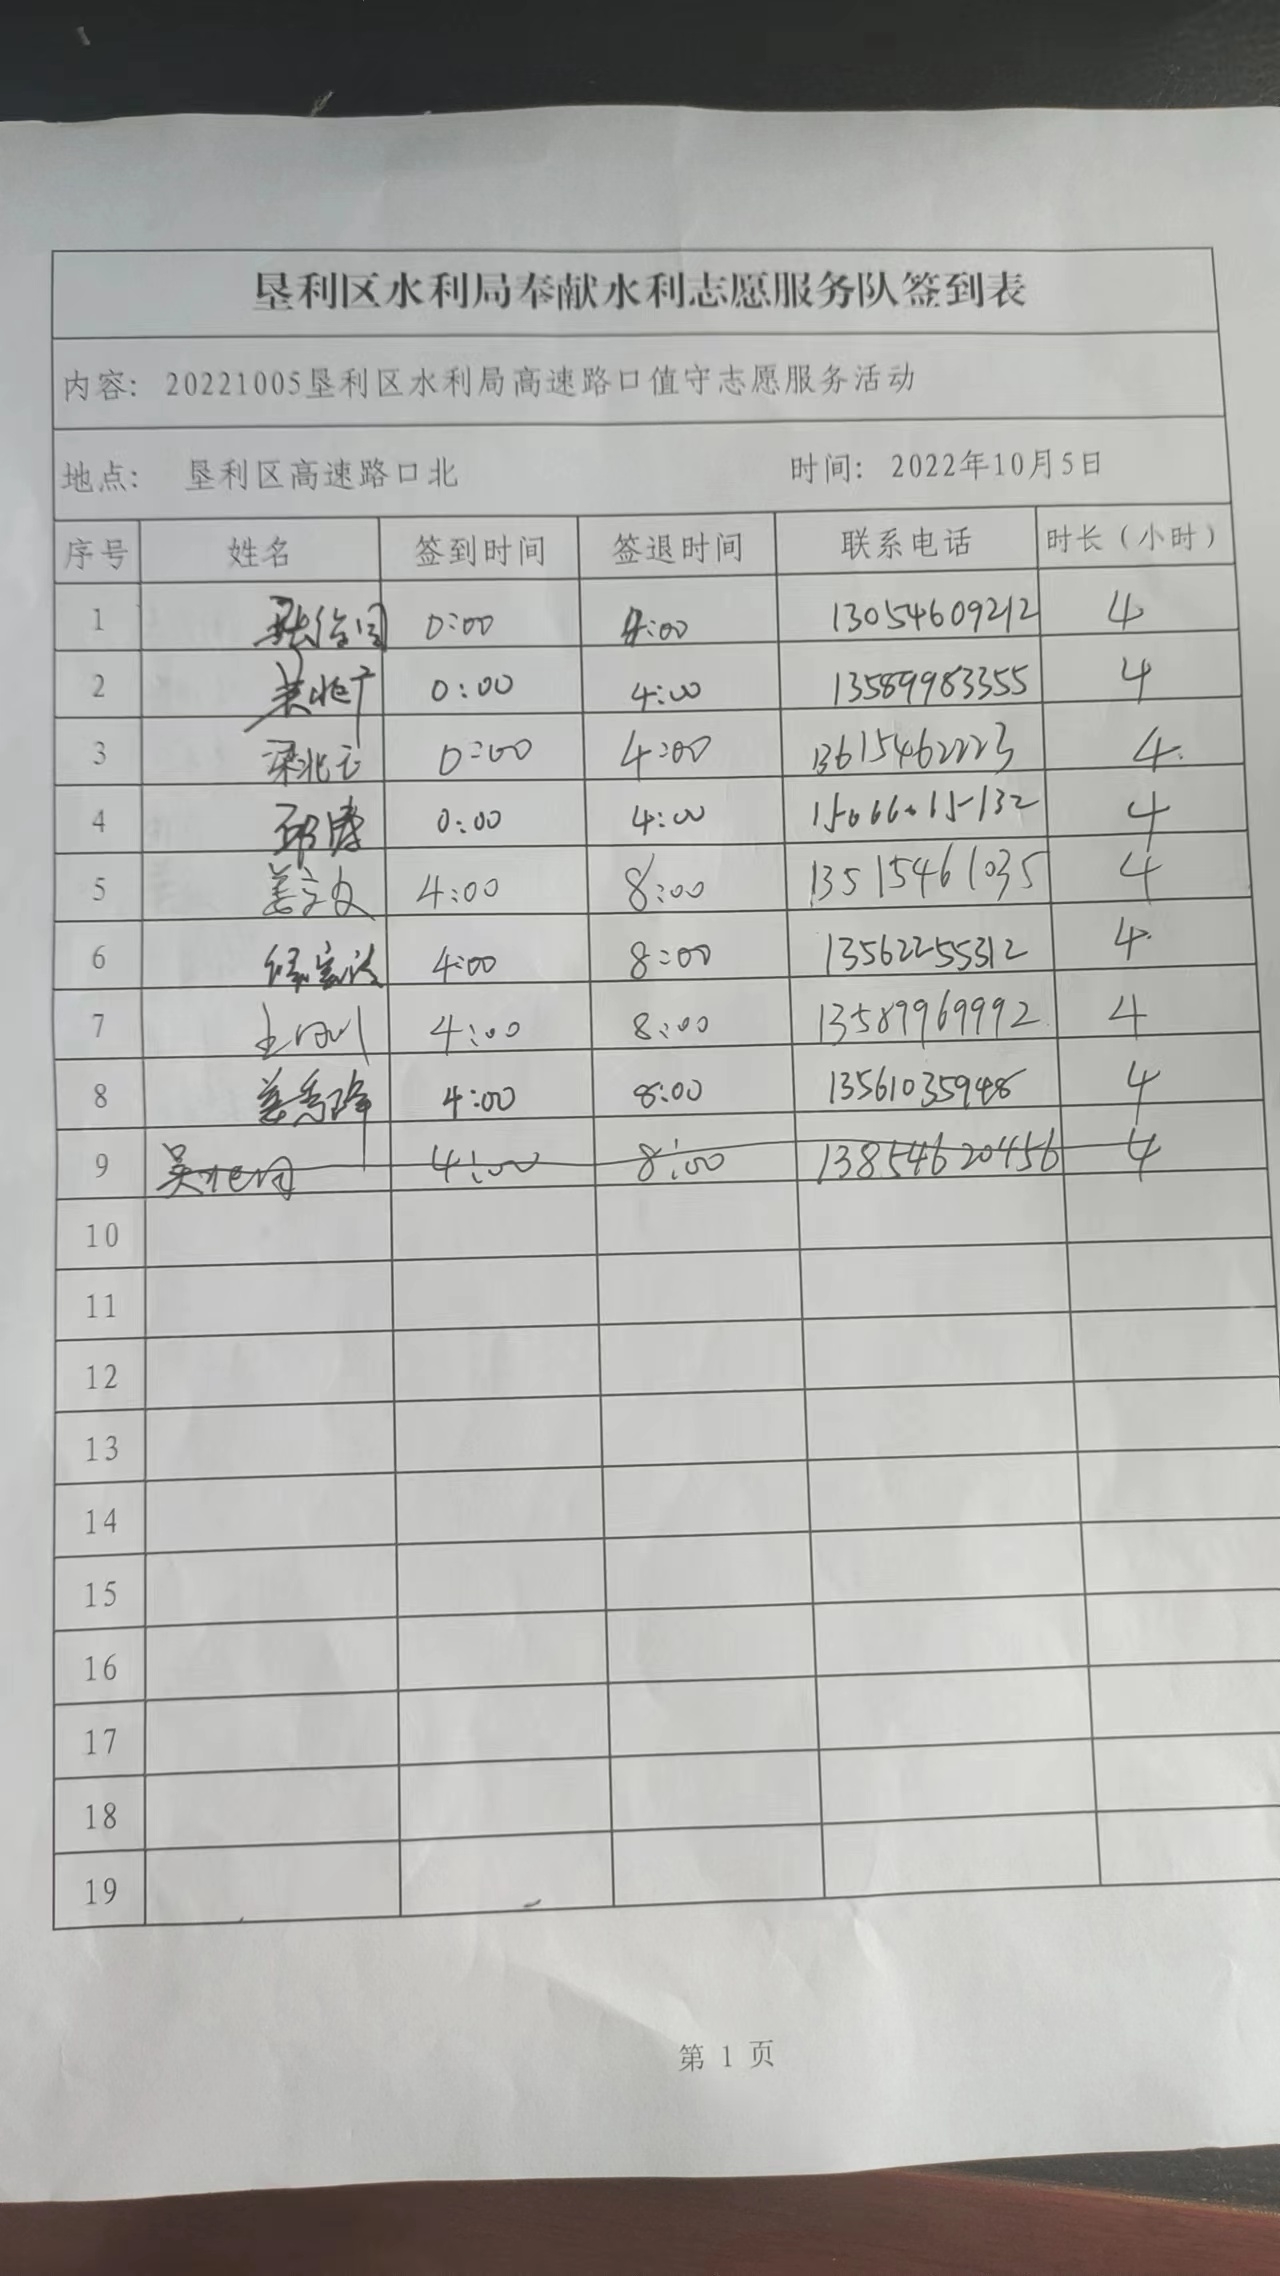 垦利区水利局奉献水利志愿服务队签到表
内容: 20221005垦利区水利局高速路口值守志愿服务活动
地点: 垦利区高速路口北 时间: 2022年10月5日
序号 姓名 签到时间 签退时间 联系电话 时长（小时）
1 0:00 4:00 13054609212 4
2 0:00 4:00 13589983355 4
3 梁兆云 0:00 4:00 13615462223 4
4 邱涛 0:00 4:00 15066015132 4
5 姜立文 4:00 8:00 13515461035 4
6 4:00 8:00 13562255312 4
7 4:00 8:00 13589969992 4
8 姜秀峰 4:00 8:00 13561035948 4
9 4:00 8:00 13854620456 4
10
11
12
13
14
15
16
17
18
19
第 1 页